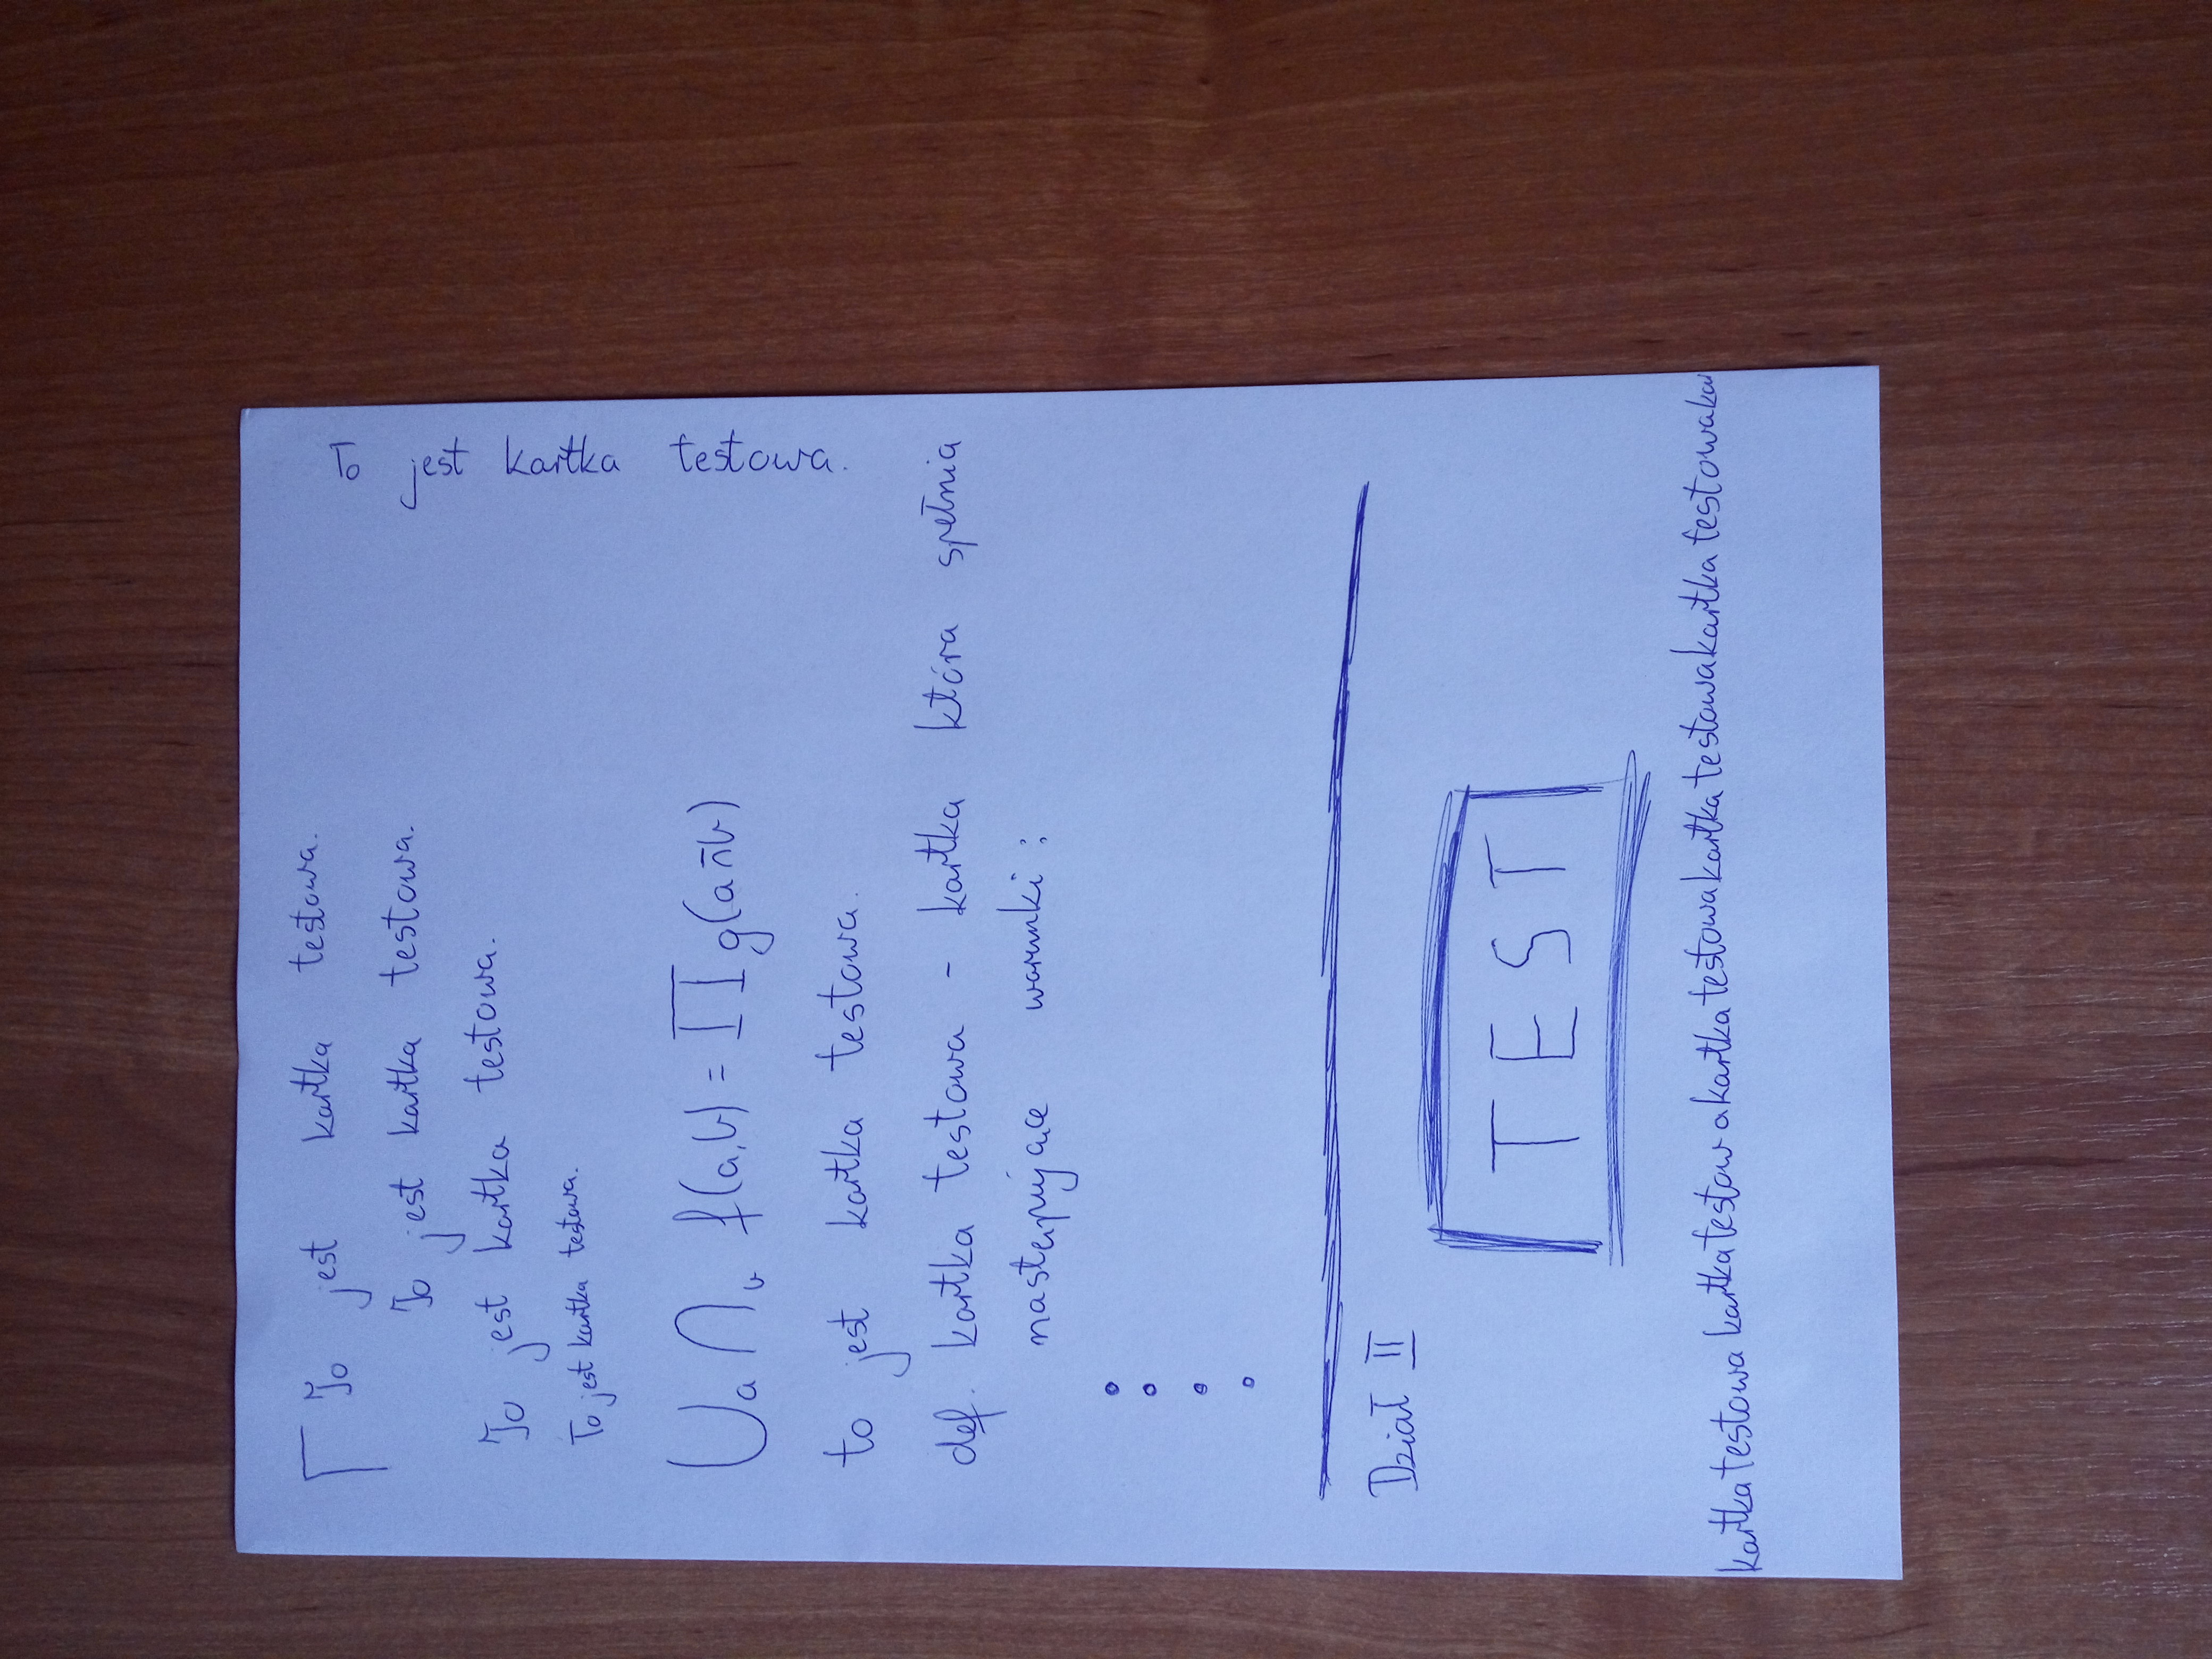 To jest kartka testowa.
To jest kartka testowa.
To jest kartka testowa.
To jest kartka testowa.
To jest kartka testowa.
⋃a ⋂b f(a,b) = ∏ g(a n̄ b)
to jest kartka testowa.
def. kartka testowa - kartka która spełnia
następujące warunki:
Dział II
TEST
kartkatestowa kartkatestowakartkatestowakartkatestowakartkatestowakartkatestowaka